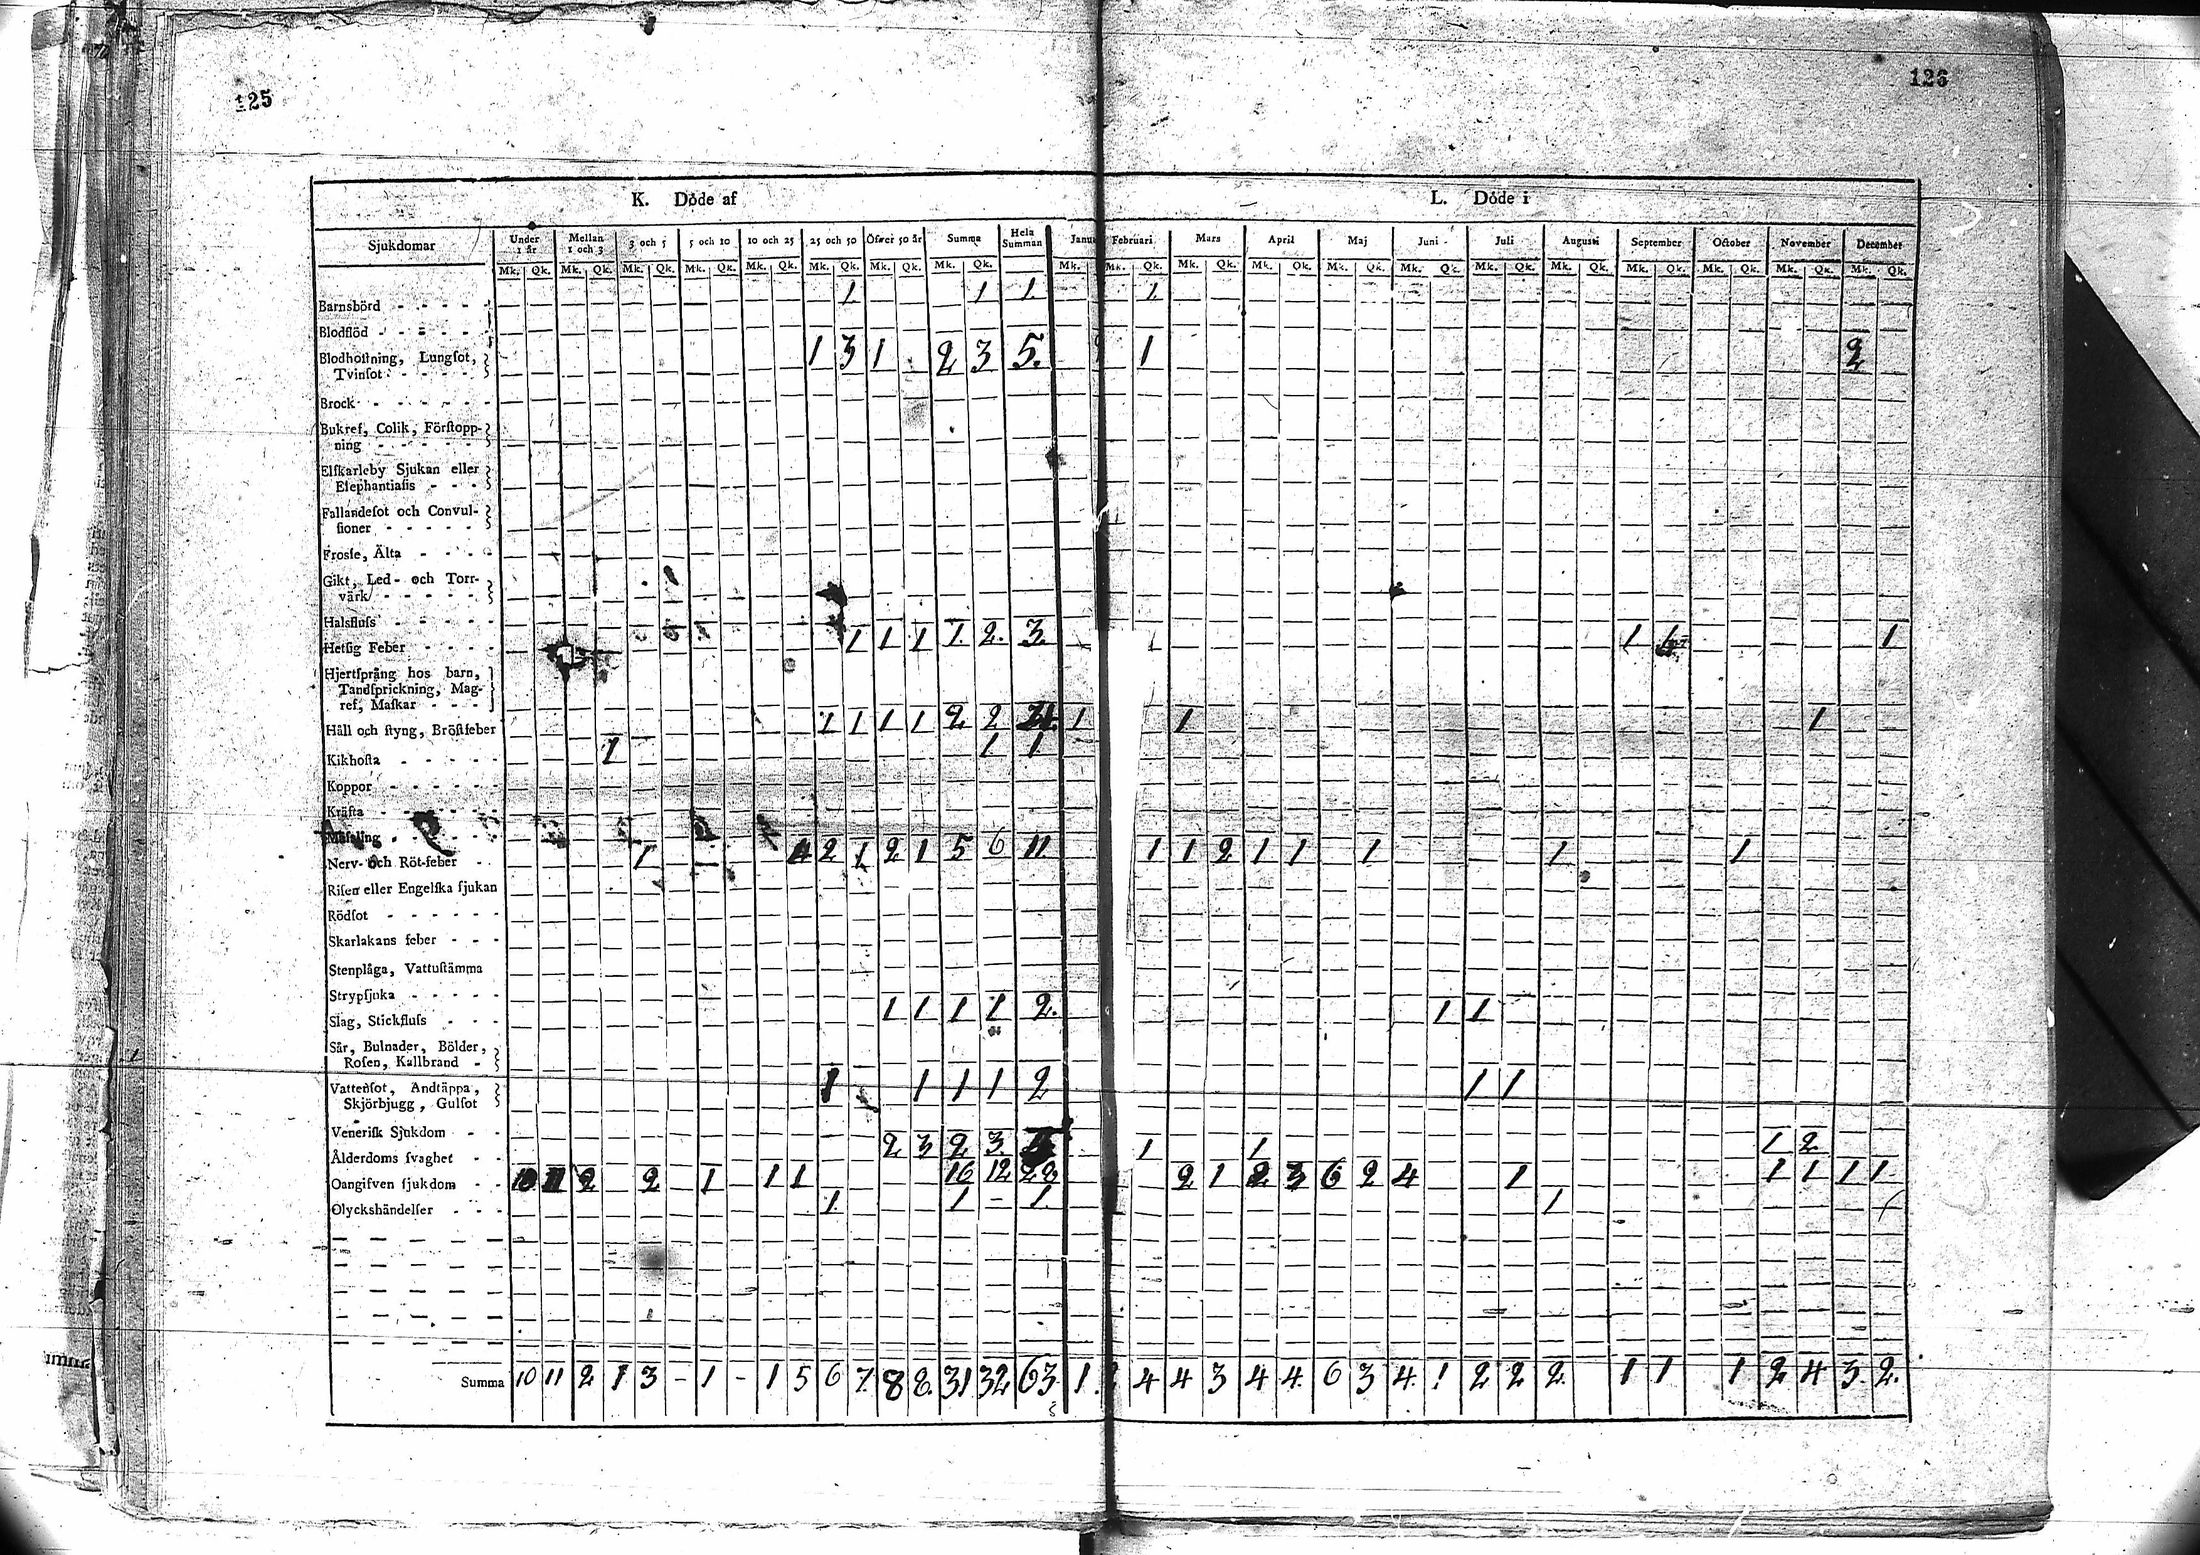 125
126
K. Döde af
L. Döde i
Sjukdomar Under 1 år Mellan 1 och 3 3 och 5 5 och 10 10 och 25 25 och 50 Öfwer 50 år Summa Hela Summan Februari Mars April Maj Juni Juli Augusti September October November December
Mk. Qk. Mk. Qk. Mk. Qk. Mk. Qk. Mk. Qk. Mk. Qk. Mk. Qk. Mk. Qk. Mk. Mk. Qk. Mk. Qk. Mk. Qk. Mk. Qk. Mk. Qk. Mk. Qk. Mk. Qk. Mk. Qk. Mk. Qk. Mk. Qk. Mk. Qk.
Barnsbörd 1 1 1 1
Blodflöd
Blodhostning, Lungsot,
Tvinsot 1 3 1 2 3 5. 1 2
Brock
Bukref, Colik, Förstopp-
ning
Elfkarleby Sjukan eller
Elephantiasis
Fallandesot och Convul-
sioner
Frossa, Älta
Gikt, Led- och Torr-
värk
Halsfluss
Hetsig Feber 1 1 1 1. 2. 3. 1 1
Hjertsprång hos barn,
Tandsprickning, Mag-
ref, Maskar
Håll och styng, Bröstfeber 1 1 1 1 2 2 1 1 1
Kikhosta 1 1 1
Koppor
Kräfta
Mässling
Nerv- och Röt-feber 1 4 2 1 2 1 5 6 11 1 1 2 1 1 1 1 1
Risen eller Engelska sjukan
Rödsot
Skarlakans feber
Stenplåga, Vattustämma
Strypsjuka
Slag, Stickfluss 1 1 1 1 2. 1 1
Sår, Bulnader, Bölder,
Rosen, Kallbrand
Vattensot, Andtäppa,
Skjörbjugg, Gulsot 1 1 1 1 2 1 1
Venerisk Sjukdom
Ålderdoms svaghet 2 3 2 3. 1 1 1 2
Oangifven sjukdom 10 11 2 2 1 1 1 16 12 28 2 1 2 3 6 2 4 1 1 1 1 1
Olyckshändelser 1. 1 – 1. 1
Summa 10 11 2 1 3 – 1 – 1 5 6 7. 8 8. 31 32 63 1. 4 4 3 4 4. 6 3 4. 1 2 2 2. 1 1 1 2 4 3. 2.